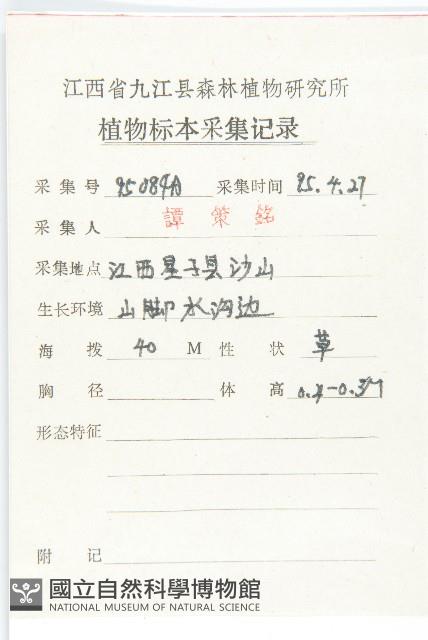 江西省九江县森林植物研究所
植物标本采集记录
采集号 95089A 采集时间 95.4.27
采集人 譚策銘
采集地点 江西星子县沙山
生长环境 山脚水沟边
海拨 40 M 性状 草
胸径 体高 0.2-0.3M
形态特征
附记
國立自然科學博物館
NATIONAL MUSEUM OF NATURAL SCIENCE